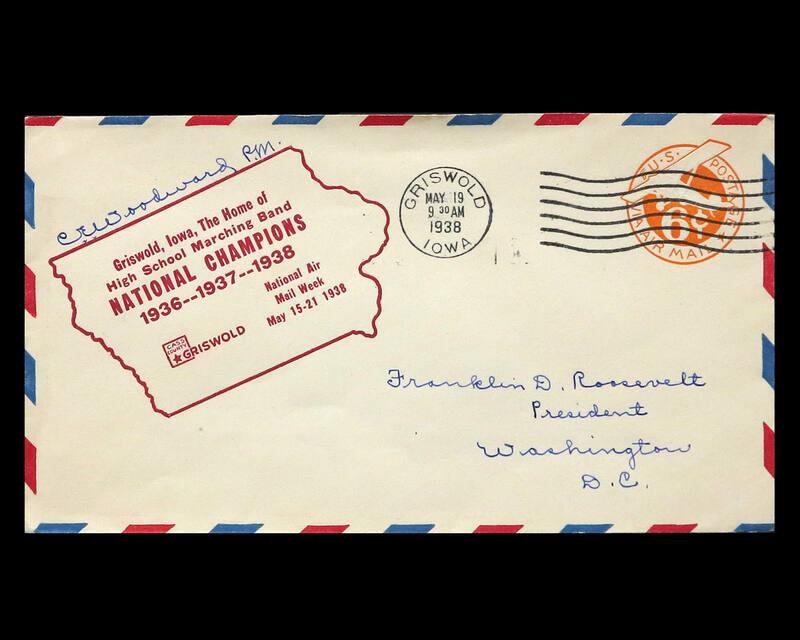 C.E. Woodward P.M.
Griswold, Iowa, The Home of
High School Marching Band
NATIONAL CHAMPIONS
1936--1937--1938
National Air
Mail Week
May 15-21 1938
CASS
COUNTY
GRISWOLD
GRISWOLD
MAY 19
9 30 AM
1938
IOWA
U.S. POSTAGE
6¢
VIA AIR MAIL
Franklin D. Roosevelt
President
Washington
D.C.